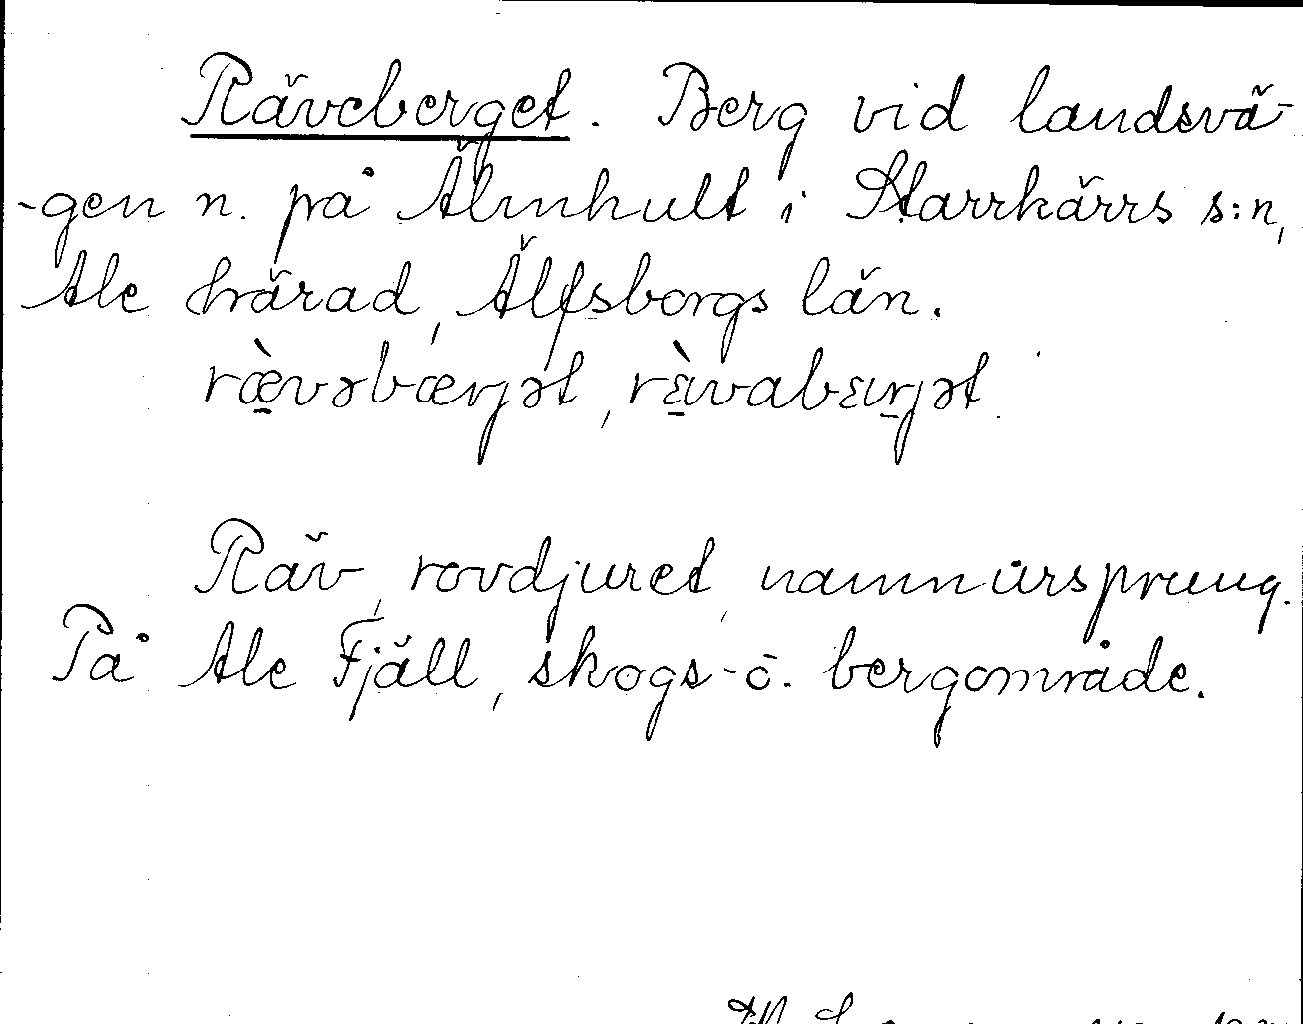 Räveberget. Berg vid landsvä-
-gen n. på Älmhult i Starrkärrs s:n,
Ale härad, Älfsborgs län.
ræ̀vəbærjət, rɛ̀vabɛrjət.
Räv, rovdjuret, namnursprung.
På Ale Fjäll, skogs- o. bergområde.